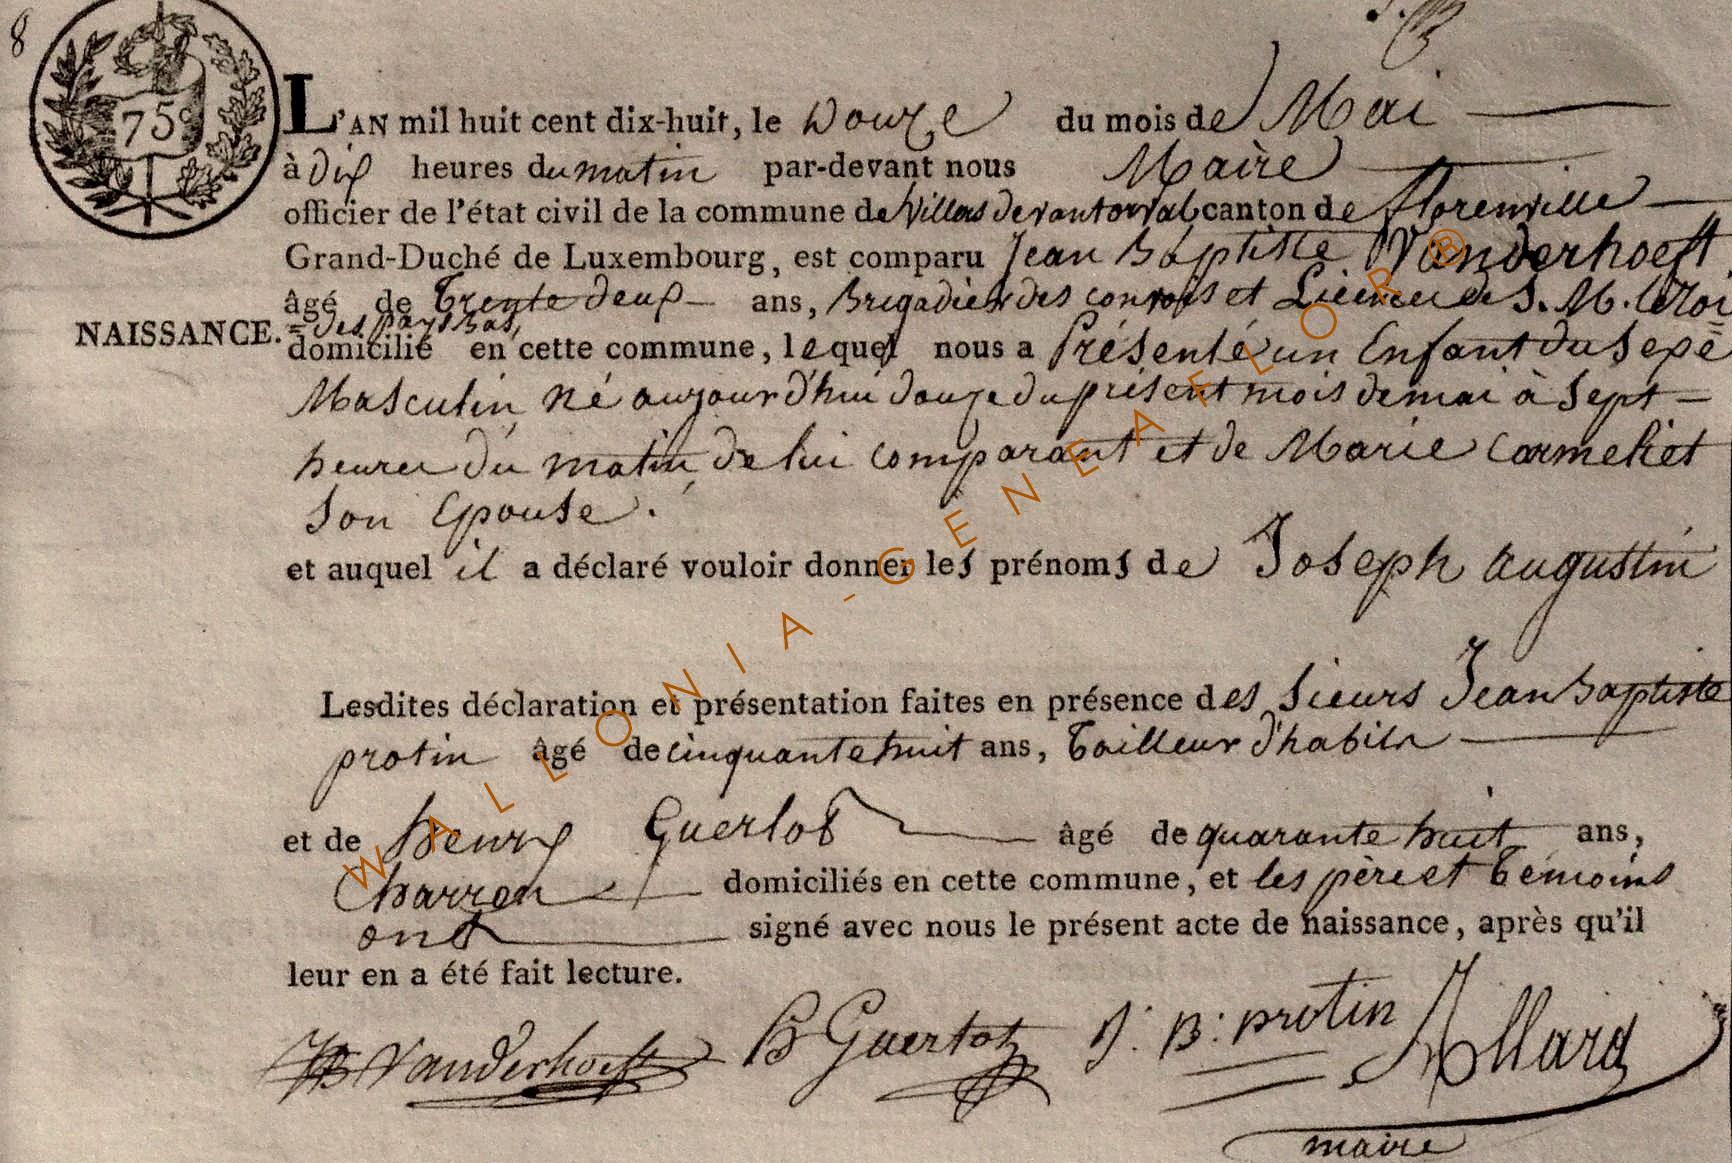 8
75c
L'AN mil huit cent dix-huit, le Douze du mois de Mai
à dix heures du matin par-devant nous Maire
officier de l'état civil de la commune de Villers devant orval canton de florenville
Grand-Duché de Luxembourg, est comparu Jean Baptiste Vanderhoeft
âgé de Trente deux ans, Brigadier des convois et Licences de S. M. le Roi
= des pays bas,
NAISSANCE. domicilié en cette commune, lequel nous a Présenté un Enfant du Sexe
Masculin né aujourd'hui douze du présent mois de mai à Sept
heures du matin, de lui comparant et de Marie Carmeliet
Son Epouse.
et auquel il a déclaré vouloir donner les prénoms de Joseph augustin
Lesdites déclaration et présentation faites en présence des Sieurs Jean baptiste
protin âgé de cinquante huit ans, Tailleur d'habits
et de henry Guerlot âgé de quarante huit ans,
Charron domiciliés en cette commune, et les père et Témoins
ont signé avec nous le présent acte de naissance, après qu'il
leur en a été fait lecture.
JB Vanderhoeft H Guerlot J: B: protin Allard
maire
WALLONIA-GENEAFLOR®